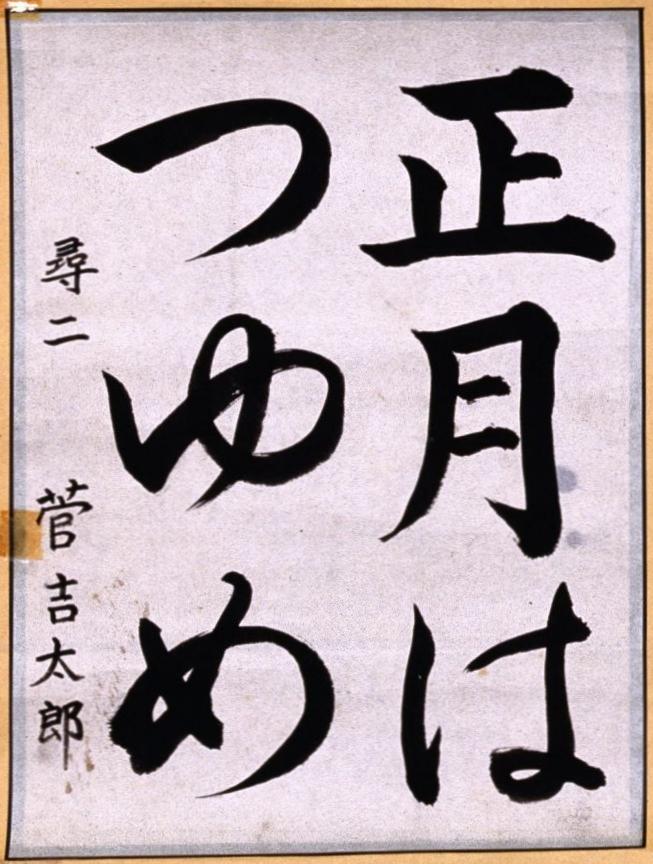 正月は
つゆめ
尋二 菅吉太郎